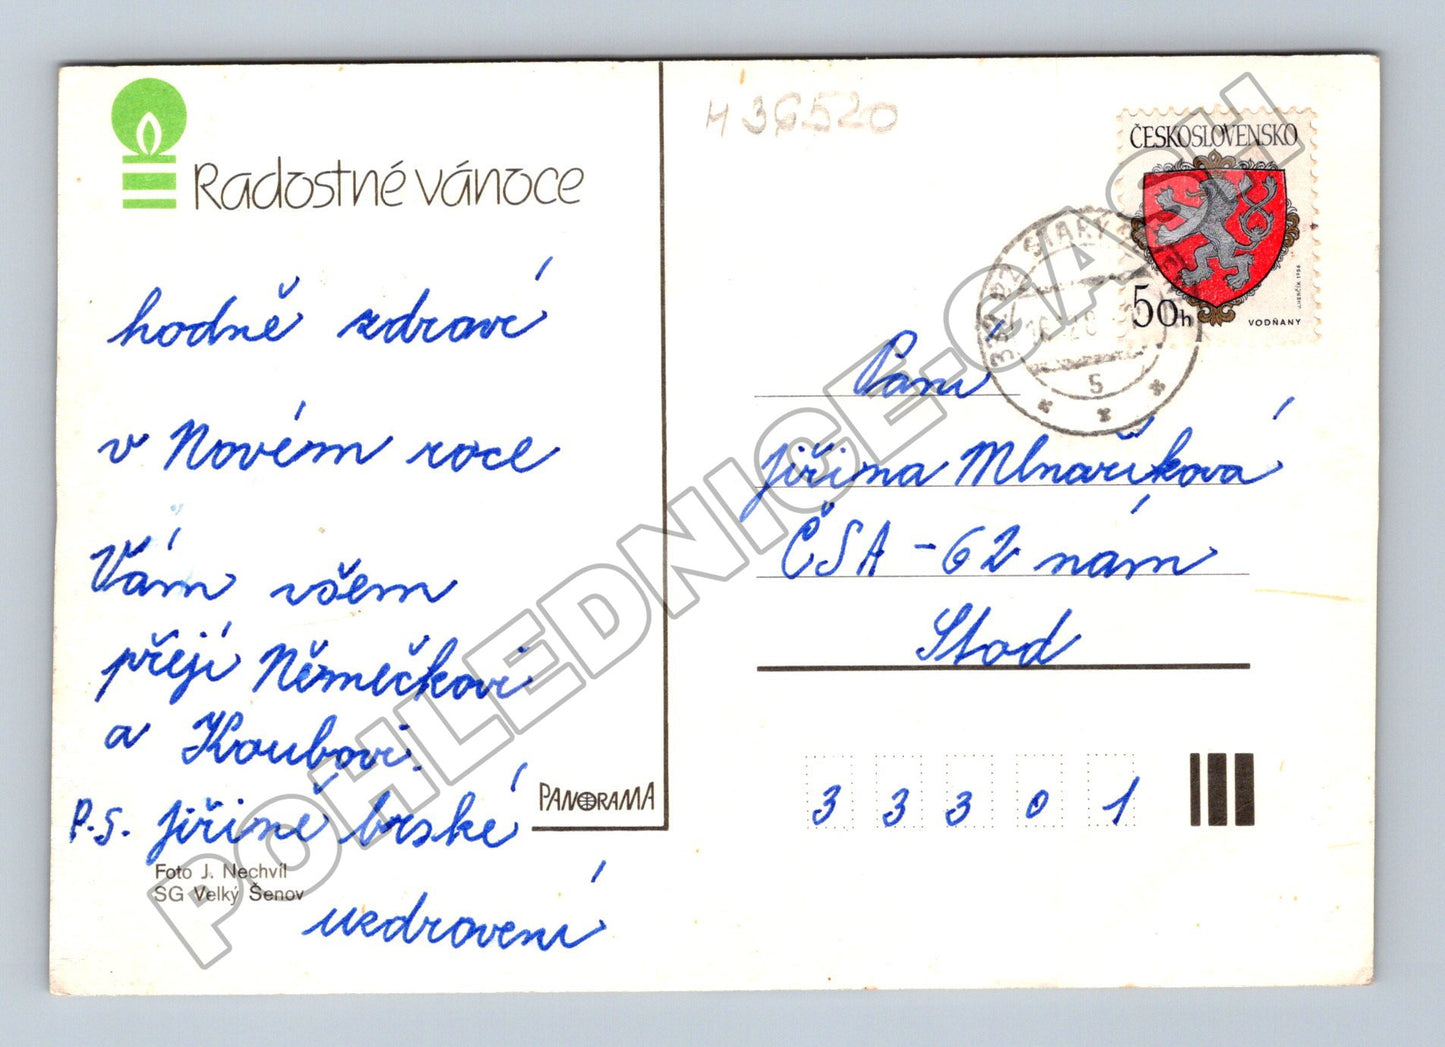 Radostné vánoce
hodně zdraví
v Novém roce
Vám všem
přejí Němečkovi
a Koubovi.
P.S. Jiřině brzské
uzdravení
Foto J. Nechvíl
SG Velký Šenov
PANORAMA
H 36520
ČESKOSLOVENSKO
50h
VODŇANY
J.HERČÍK 1986
STARÝ
5
Paní
Jiřina Mlnaříková
ČSA - 62 nám
Stod
3 3 3 0 1
POHLEDNICE-CASH